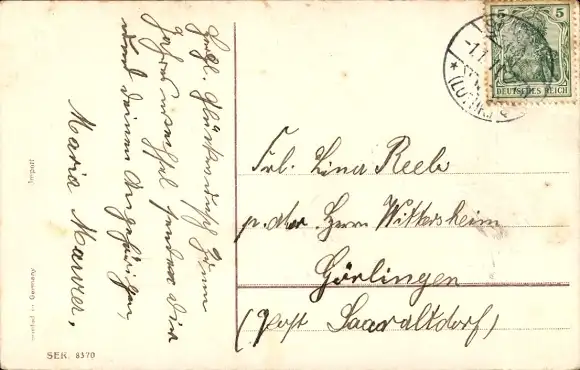 Herzl. Glückwunsch zum
Jahreswechsel sendet dir
und deinen Angehörigen,
Maria Maurer,
Import
Germany
SER. 8370
5 5
DEUTSCHES REICH
-1.1.11
(LOTHR.)
Frl. Lina Reeb
p. adr. Herrn Wittersheim
Görlingen
(Post Saaraltdorf)